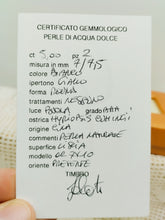 CERTIFICATO GEMMOLOGICO
PERLE DI ACQUA DOLCE
ct 5,00 pz 2
misura in mm 7/7,5
colore BIANCO
ipertono GIALLO
forma
trattamenti NESSUNO
luce BUONA graduata
ostrica HYRIOPSIS CUMINGII
origine CINA
commenti PERLA NATURALE
superficie LISCIA
modello
oriente PRESENTE
TIMBRO